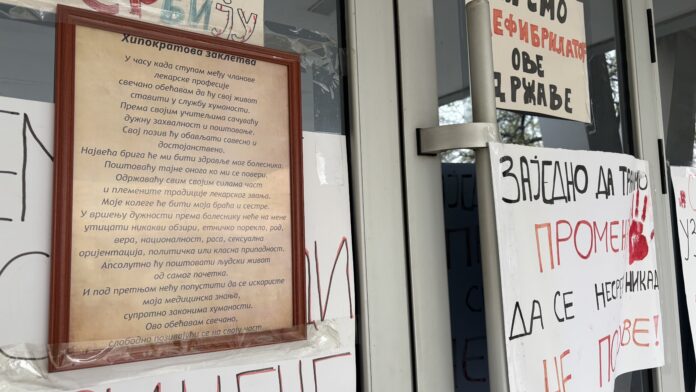 СРБИЈУ
Хипократова заклетва
У часу када ступам међу чланове
лекарске професије
свечано обећавам да ћу свој живот
ставити у службу хуманости.
Према својим учитељима сачуваћу
дужну захвалност и поштовање.
Свој позив ћу обављати савесно и
достојанствено.
Највећа брига ће ми бити здравље мог болесника.
Поштоваћу тајне оног ко ми се повери.
Одржаваћу свим својим силама част
и племените традиције лекарског звања.
Моје колеге ће бити моја браћа и сестре.
У вршењу дужности према болеснику неће на мене
утицати никакви обзири, етничко порекло, род,
вера, националност, раса, сексуална
оријентација, политичка или класна припадност.
Апсолутно ћу поштовати људски живот
од самог почетка.
И под претњом нећу попустити да се искористе
моја медицинска знања,
супротно законима хуманости.
Ово обећавам свечано,
слободно позивајући се на своју част.
ЕФИБРИЛАТОР
ОВЕ
ДРЖАВЕ
ЗАЈЕДНО ДА
ПРОМЕН
ДА СЕ НЕСРЕ НИКАД
НЕ ПО ВЕ!